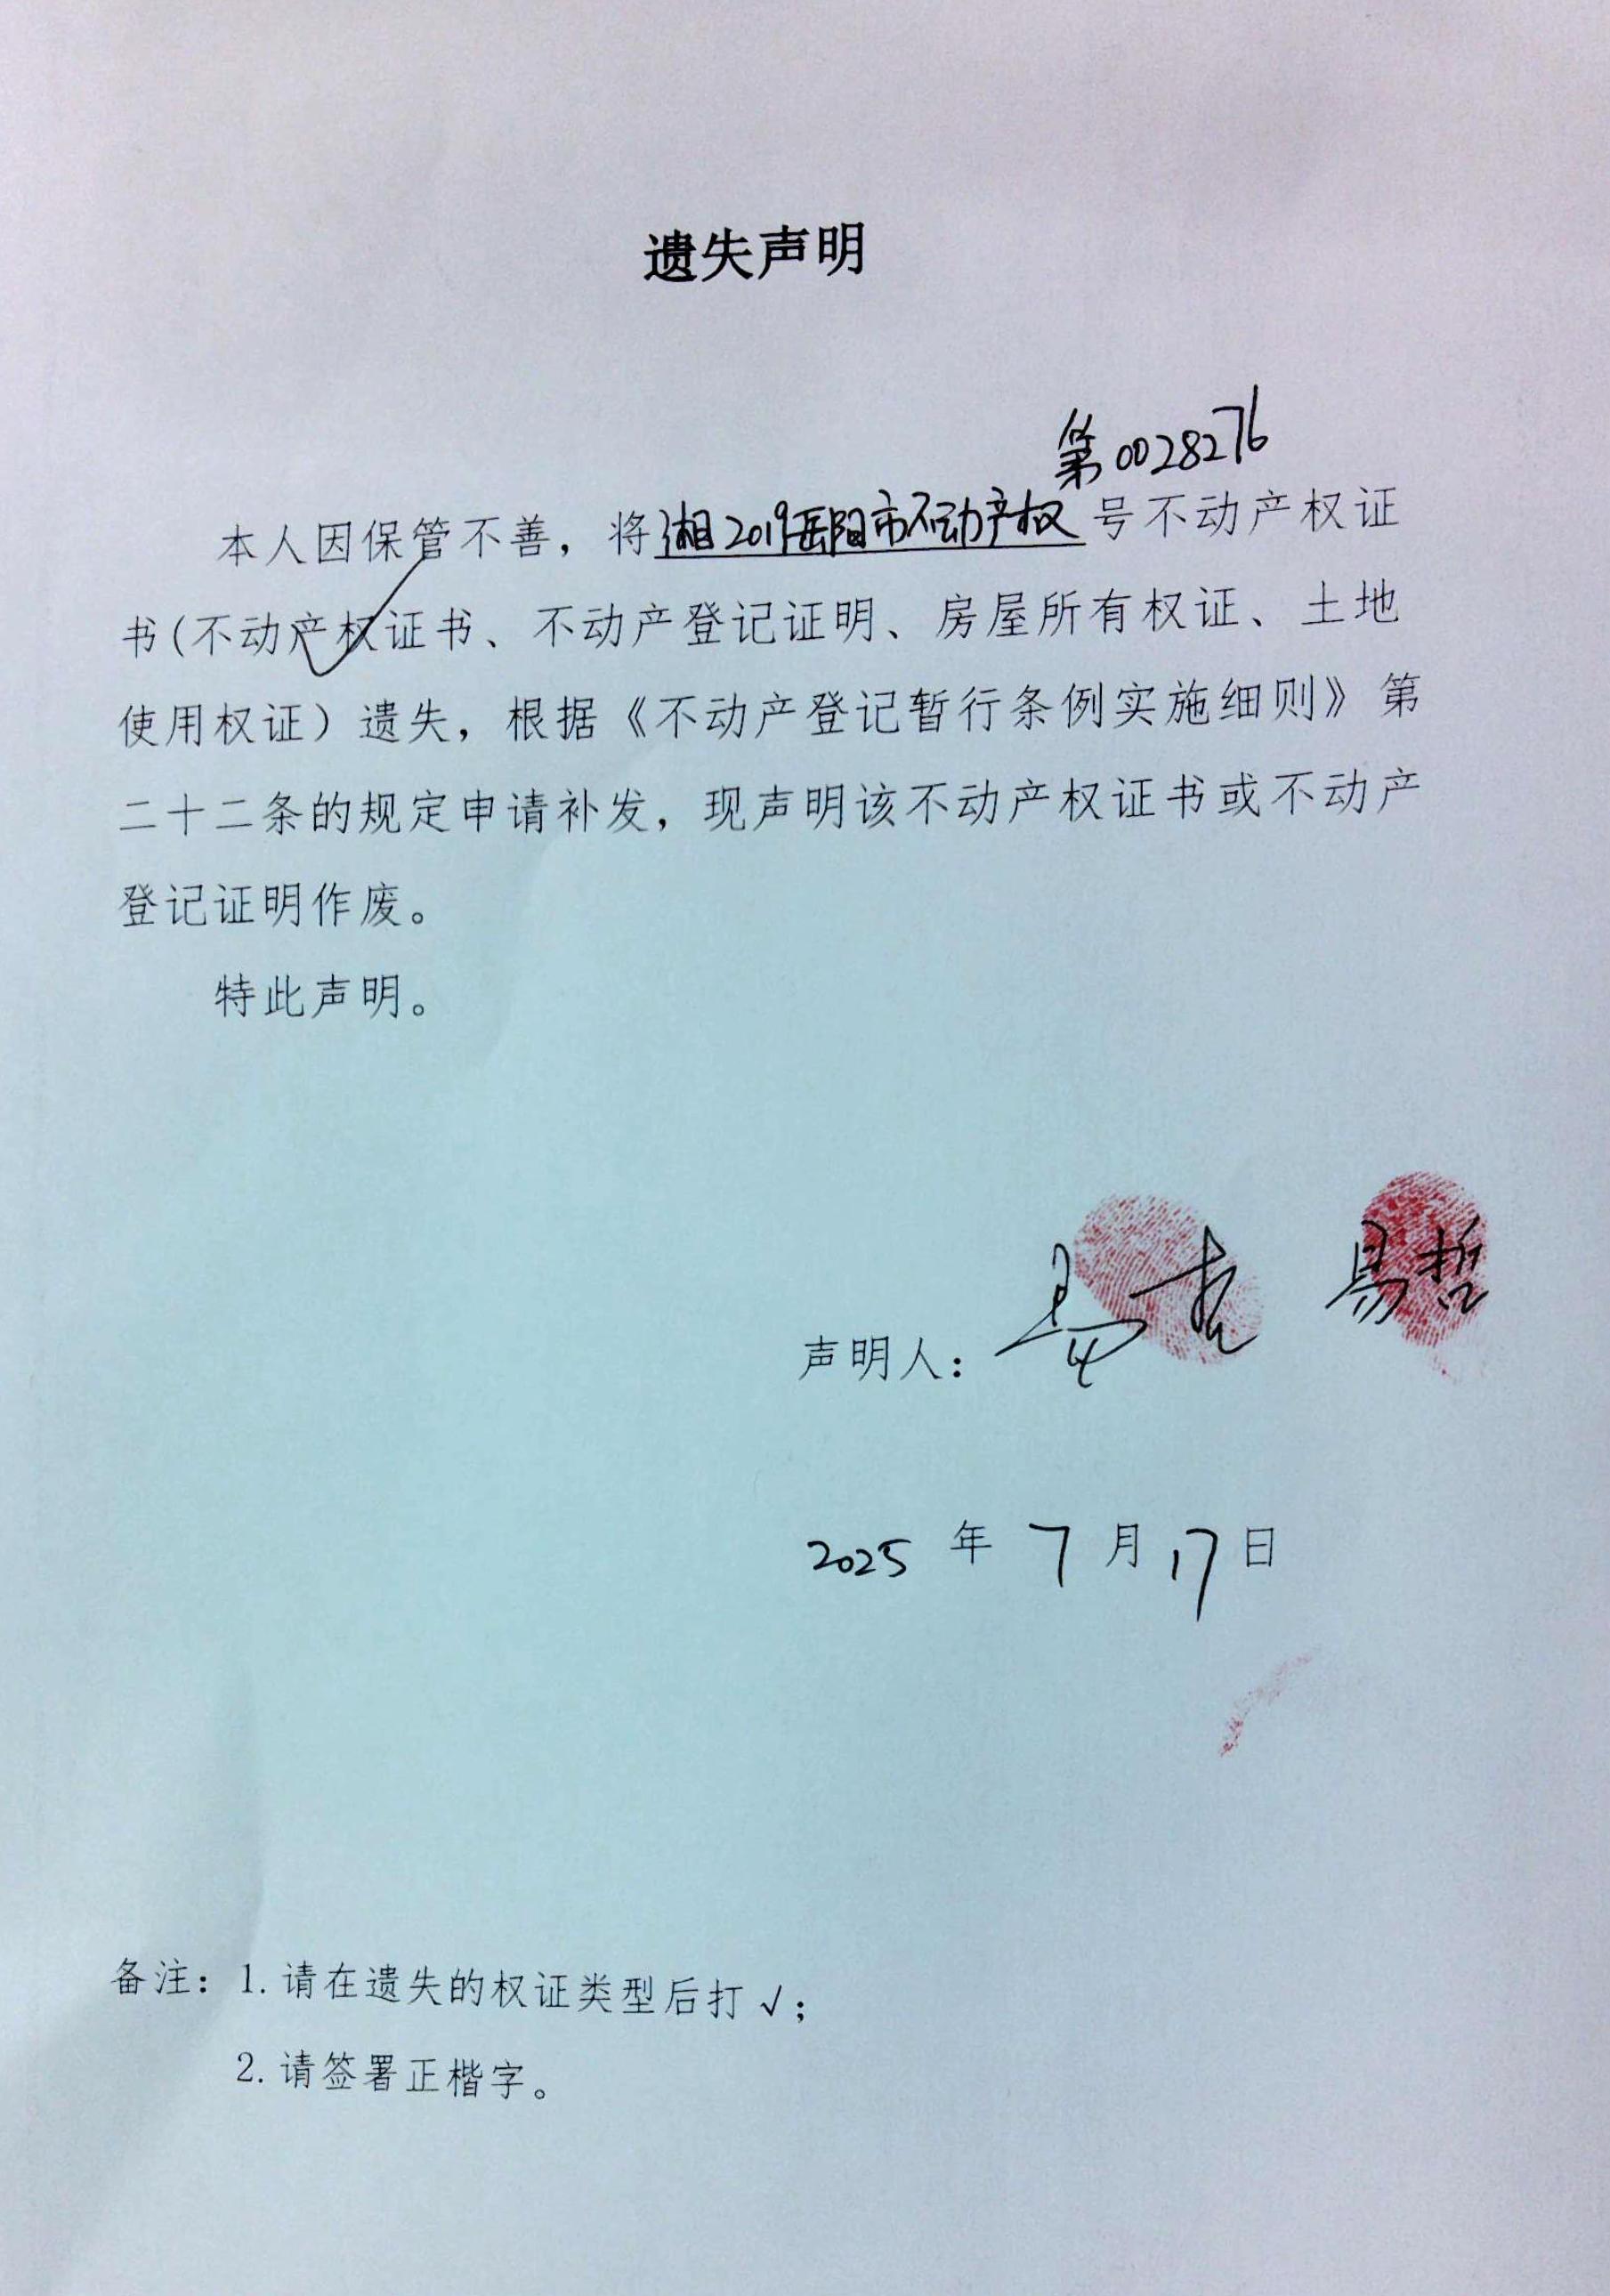 遗失声明
第0028276
本人因保管不善，将湘2019岳阳市不动产权号不动产权证
书(不动产权证书、不动产登记证明、房屋所有权证、土地
使用权证）遗失，根据《不动产登记暂行条例实施细则》第
二十二条的规定申请补发，现声明该不动产权证书或不动产
登记证明作废。
特此声明。
声明人： 易哲
2025 年 7 月 17 日
备注：1.请在遗失的权证类型后打√；
2.请签署正楷字。